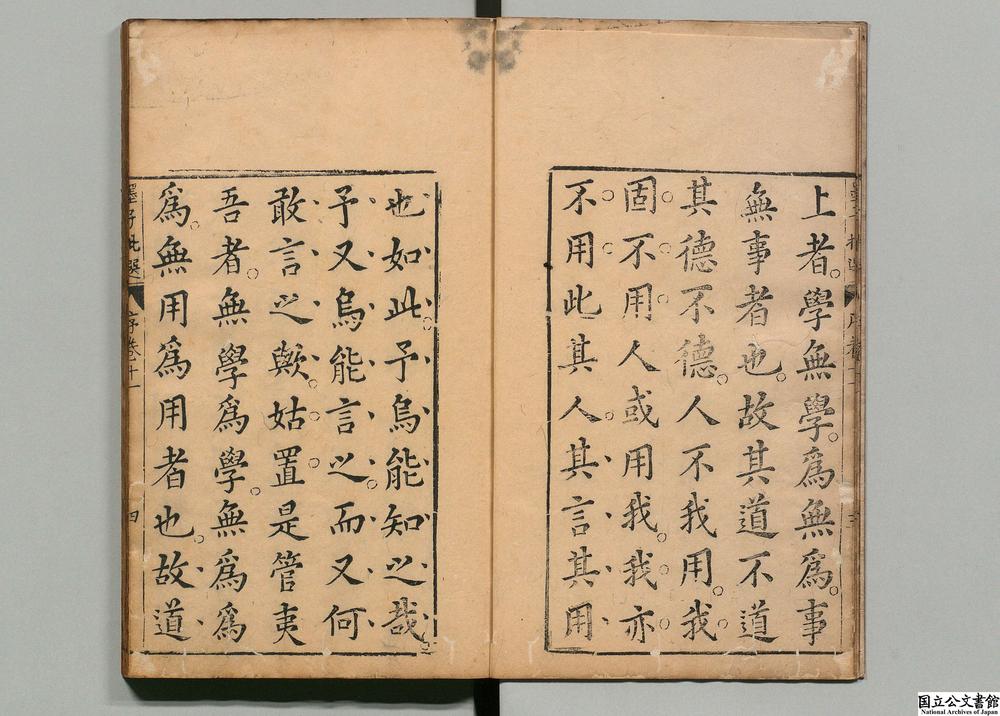 上者學無學爲無爲事
無事者也故其道不道
其德不德人不我用我
固不用人或用我我亦
不用此其人其言其用
也如此予烏能知之哉
予又烏能言之而又何
敢言之歟姑置是管夷
吾者無學爲學無爲爲
爲無用爲用者也故道
墨子批選
序卷十一
四
国立公文書館
National Archives of Japan